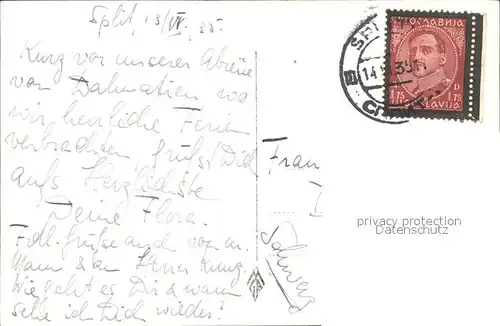 Split, 13/VI. 35.
Kurz vor unserer Abreise
von Dalmatien wo
wir herrliche Ferien
verbrachten, grüsst Dich
aufs Herzlichste
Deine Flora.
Frdl. Grüsse auch von m.
Mann & an Herrn Kunz.
Wie geht es Dir & wann
sehe ich Dich wieder?
Frau
Schweiz
ЈУГОСЛАВИЈА
1.75
1.75 D
JUGOSLAVIJA
SPLIT
14
35
privacy protection
Datenschutz